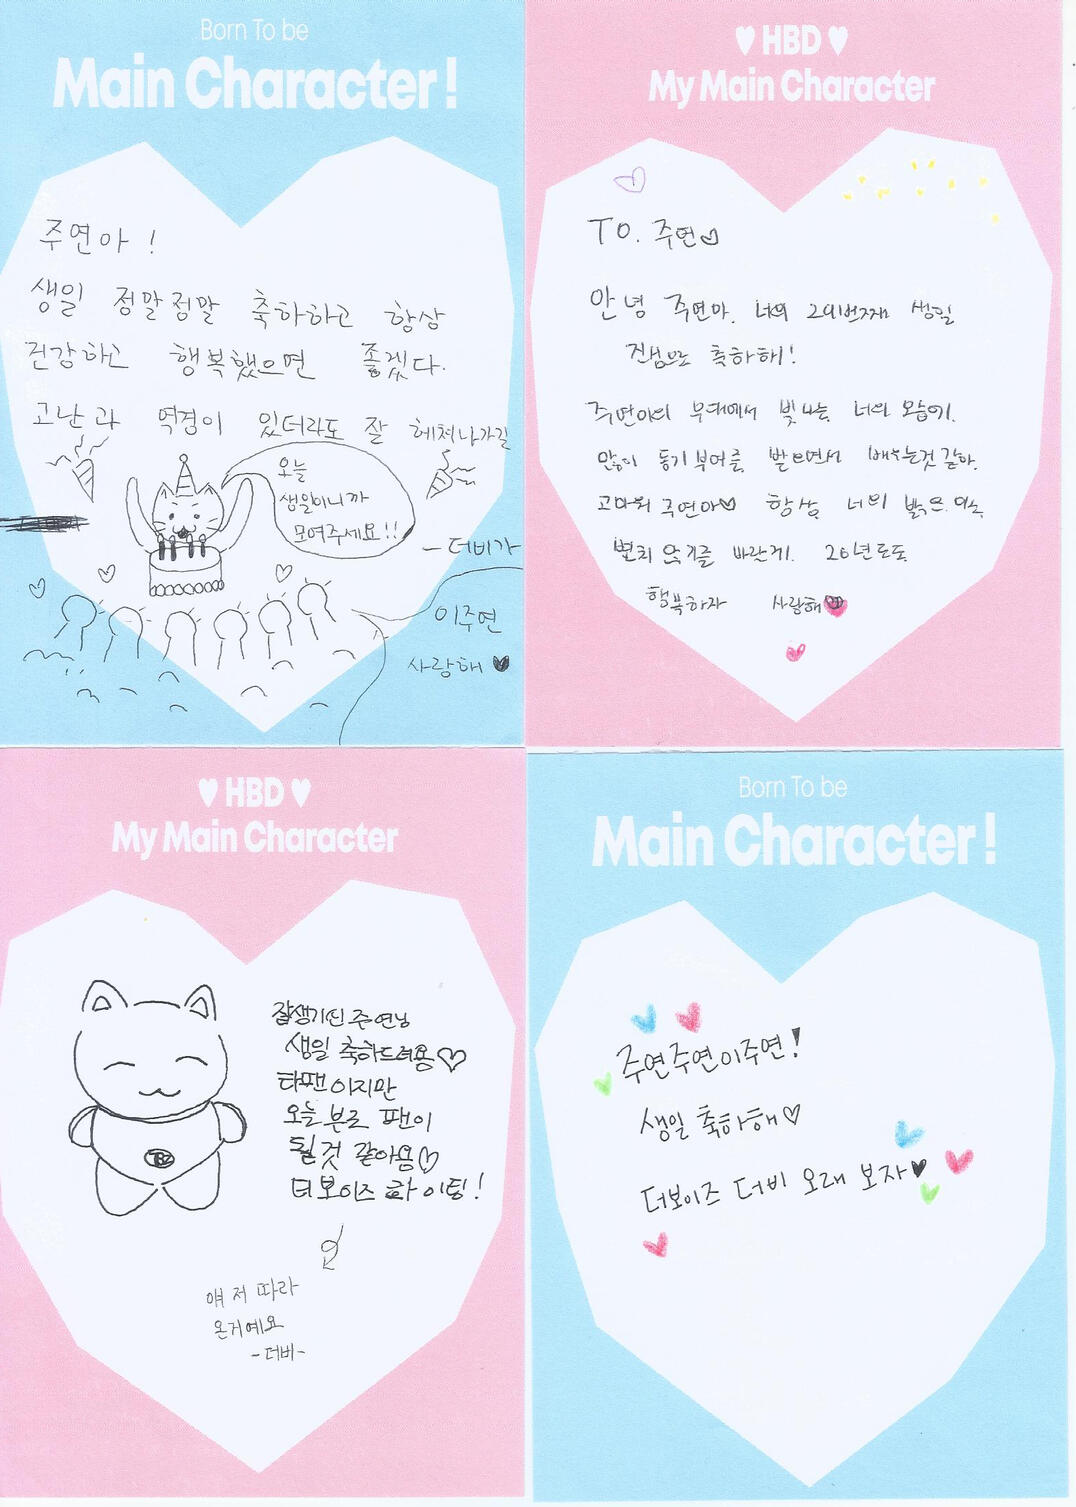 Born To be
Main Character!
주연아!
생일 정말정말 축하하고 항상
건강하고 행복했으면 좋겠다.
고난과 역경이 있더라도 잘 헤쳐나가길
오늘
생일이니까
모여주세요!!
- 더비가
이주연
사랑해 ♥
♥ HBD ♥
My Main Character
TO. 주연♡
안녕 주연아. 너의 번째 생일
진심으로 축하해!
주연아의 무대에서 빛나는 너의 모습에.
많이 동기부여를 받으면서 배우는것 같아.
고마워 주연아♡ 항상 너의 밝은
잃지 않기를 바란게. 26년도도
행복하자 사랑해♥
♥ HBD ♥
My Main Character
잘생기신 주연님
생일 축하드려용♡
타팬이지만
오늘 부로 팬이
될것 같아용♡
더보이즈 화이팅!
TBZ
얘 저 따라
온거예요
-더비-
Born To be
Main Character!
주연주연이주연!
생일 축하해♡
더보이즈 더비 오래 보자♥